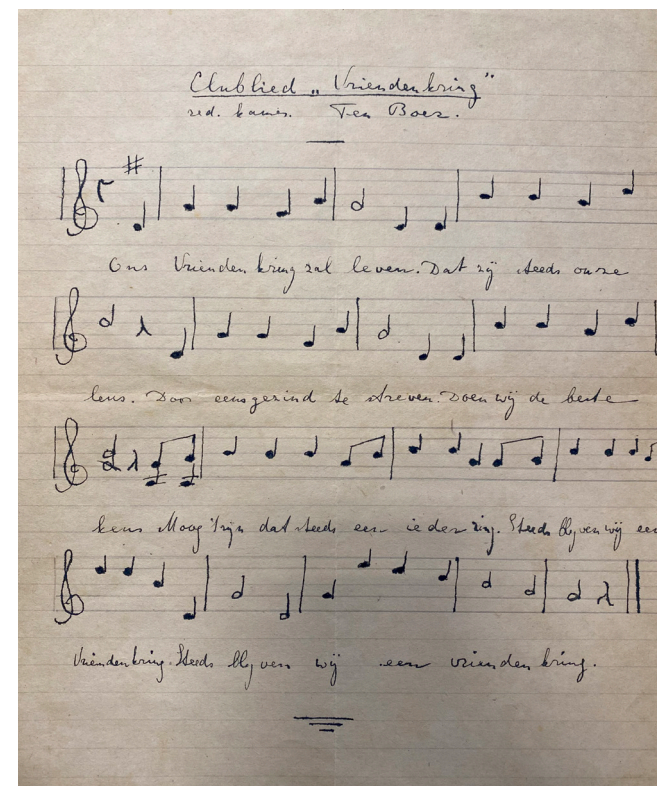 Clublied „Vriendenkring"
red. kamer. Ten Boer.
Ons Vriendenkring zal leven. Dat zij steeds onze
leus. Door eensgezind te streven. Doen wij de beste
keus Moog 't zijn dat steeds een ieder zing. Steeds blijven wij een
Vriendenkring. Steeds blijven wij een vriendenkring.